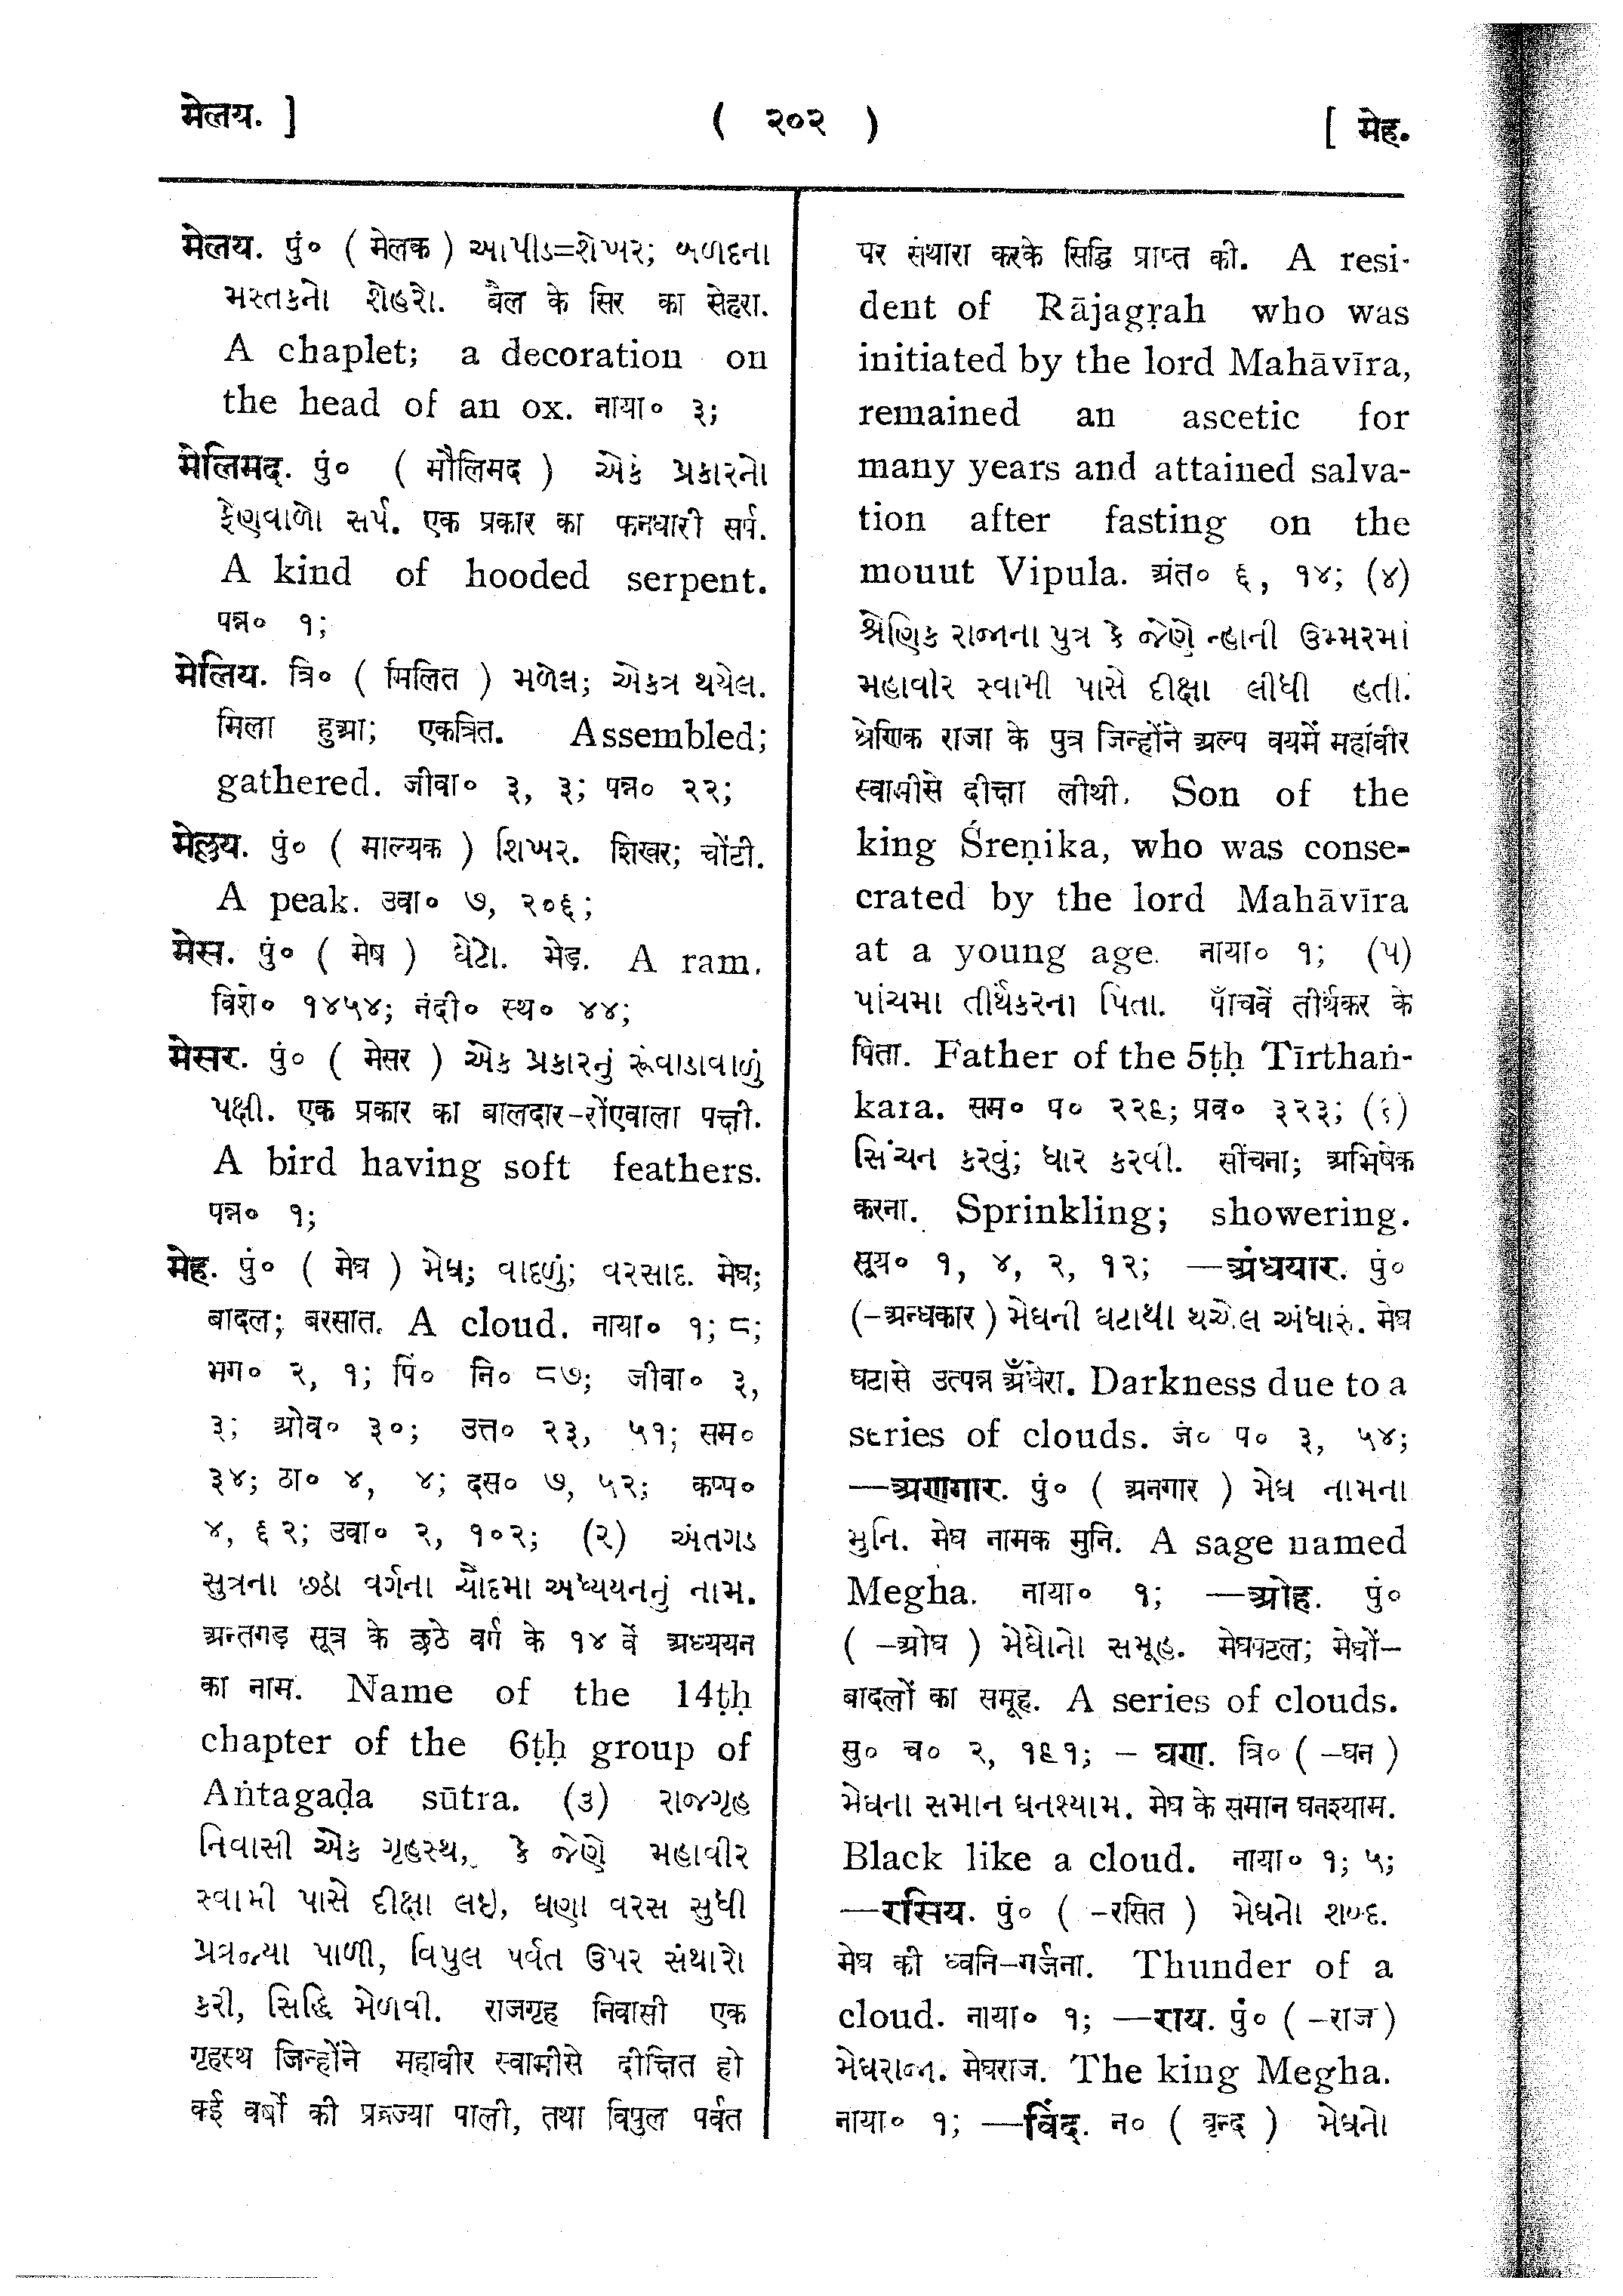 मेलय. ]
( २०२ )
[ मेह.
मेलय. पुं० ( मेलक ) આપીડ=શેખર; બળદના
મસ્તકનો શેહરો. बैल के सिर का सेहरा.
A chaplet; a decoration on
the head of an ox. नाया० ३;
मेलिमद्. पुं० ( मौलिमद ) એક પ્રકારનો
ફેણવાળો સર્પ. एक प्रकार का फनधारी सर्प.
A kind of hooded serpent.
पन्न० १;
मेलिय. त्रि० ( मिलित ) મળેલ; એકત્ર થયેલ.
मिला हुआ; एकत्रित. Assembled;
gathered. जीवा० ३, ३; पन्न० २२;
मेलुय. पुं० ( माल्यक ) શિખર. शिखर; चोंटी.
A peak. उवा० ७, २०६;
मेस. पुं० ( मेष ) ઘેટો. भेड़. A ram.
विशे० १४५४; नंदी० स्थ० ४४;
मेसर. पुं० ( मेसर ) એક પ્રકારનું રૂંવાડાવાળું
પક્ષી. एक प्रकार का बालदार-रोंएवाला पक्षी.
A bird having soft feathers.
पन्न० १;
मेह. पुं० ( मेघ ) મેઘ; વાદળું; વરસાદ. मेघ;
बादल; बरसात. A cloud. नाया० १; ८;
भग० २, १; पिं० नि० ८७; जीवा० ३,
३; ओव० ३०; उत्त० २३, ५१; सम०
३४; ठा० ४, ४; दस० ७, ५२; कप्प०
४, ६२; उवा० २, १०२; (२) અંતગડ
સુત્રના છઠા વર્ગના ચૌદમા અધ્યયનનું નામ.
अन्तगड़ सूत्र के छठे वर्ग के १४ वें अध्ययन
का नाम. Name of the 14ṭḥ
chapter of the 6ṭḥ group of
Aṅtagaḍa sūtra. (૩) રાજગૃહ
નિવાસી એક ગૃહસ્થ, કે જેણે મહાવીર
સ્વામી પાસે દીક્ષા લઇ, ઘણા વરસ સુધી
પ્રવ્રજ્યા પાળી, વિપુલ પર્વત ઉપર સંથારો
કરી, સિદ્ધિ મેળવી. राजगृह निवासी एक
गृहस्थ जिन्होंने महावीर स्वामीसे दीक्षित हो
कई वर्षों की प्रव्रज्या पाली, तथा विपुल पर्वत
पर संथारा करके सिद्धि प्राप्त की. A resi-
dent of Rājagṛah who was
initiated by the lord Mahāvīra,
remained an ascetic for
many years and attained salva-
tion after fasting on the
mouut Vipula. अंत० ६, १४; (४)
શ્રેણિક રાજાના પુત્ર કે જેણે ન્હાની ઉમ્મરમાં
મહાવીર સ્વામી પાસે દીક્ષા લીધી હતી.
श्रेणिक राजा के पुत्र जिन्होंने अल्प वयमें महावीर
स्वामीसे दीक्षा लीथी. Son of the
king Śreṇika, who was conse-
crated by the lord Mahāvīra
at a young age. नाया० १; (५)
પાંચમા તીર્થંકરના પિતા. पाँचवें तीर्थंकर के
पिता. Father of the 5ṭḥ Tīrthaṅ-
kara. सम० प० २२६; प्रव० ३२३; (६)
સિંચન કરવું; ધાર કરવી. सींचना; अभिषेक
करना. Sprinkling; showering.
सूय० १, ४, २, १२; —अंधयार. पुं०
(-अन्धकार ) મેઘની ઘટાથી થયેલ અંધારું. मेघ
घटासे उत्पन्न अँधेरा. Darkness due to a
series of clouds. जं० प० ३, ५४;
—अणगार. पुं० ( अनगार ) મેઘ નામના
મુનિ. मेघ नामक मुनि. A sage named
Megha. नाया० १; —ओह. पुं०
( -ओघ ) મેઘોનો સમૂહ. मेघपटल; मेघों-
बादलों का समूह. A series of clouds.
सु० च० २, १६१; - घण. त्रि० ( -घन )
મેઘના સમાન ઘનશ્યામ. मेघ के समान घनश्याम.
Black like a cloud. नाया० १; ५;
—रसिय. पुं० ( -रसित ) મેઘનો શબ્દ.
मेघ की ध्वनि-गर्जना. Thunder of a
cloud. नाया० १; —राय. पुं० ( -राज )
મેઘરાજા. मेघराज. The king Megha.
नाया० १; —विंद्. न० ( वृन्द ) મેઘનો